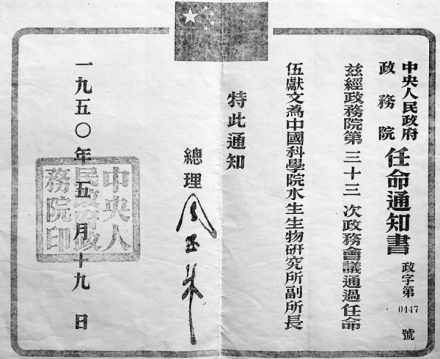 中央人民政府
政務院
任命通知書
政字第0147號
兹經政務院第三十三次政務會議通過任命
伍獻文為中國科學院水生生物研究所副所長
特此通知
總理 周恩來
一九五〇年五月十九日
中央人
民政府政
務院印